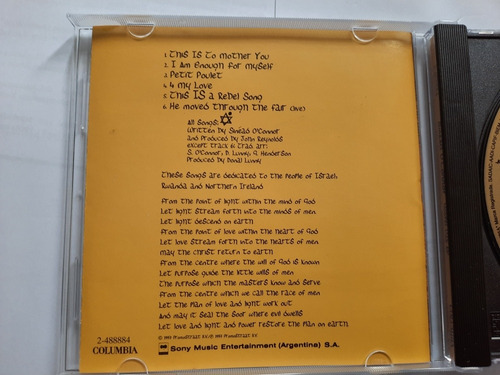 1. This IS To Mother You
2. I Am Enough for Myself
3. Petit Poulet
4. 4 My Love
5. This IS a Rebel Song
6. He moved through the fair (live)
All Songs:
Written by Sinéad O'Connor
and Produced by John Reynolds
except track 6: trad. arr:
S. O'Connor, D. Lunny, A. Henderson
Produced by Donal Lunny
These Songs are dedicated to the People of Israel,
Rwanda and Northern Ireland
From the Point of light within the mind of God
Let light stream forth into the minds of men
Let light descend on earth
From the Point of love within the heart of God
Let love stream forth into the hearts of men
may the Christ return to earth
From the centre where the will of God is known
Let Purpose guide the little wills of men
The Purpose which the masters know and serve
From the centre which we call the race of men
Let the Plan of love and light work out
And may it seal the door where evil dwells
Let love and light and Power restore the Plan on earth
2-488884
COLUMBIA
Sony Music Entertainment (Argentina) S.A.